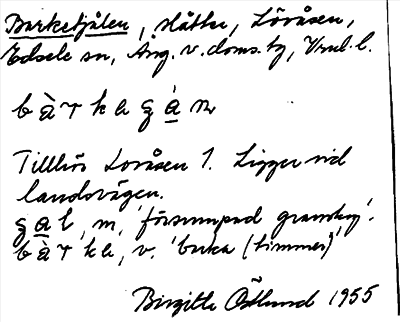 Barketjälen, slåtter, Lövåsen,
Edsele sn, Ång. v. doms. tg, Vnrl. l.
b à r k a g á n
Tillhör Lovåsen 1. Ligger vid
landsvägen.
g a l, m, 'försumpad granskog'.
b à r k a, v. 'barka (timmer)'
Birgitta Östlund 1955